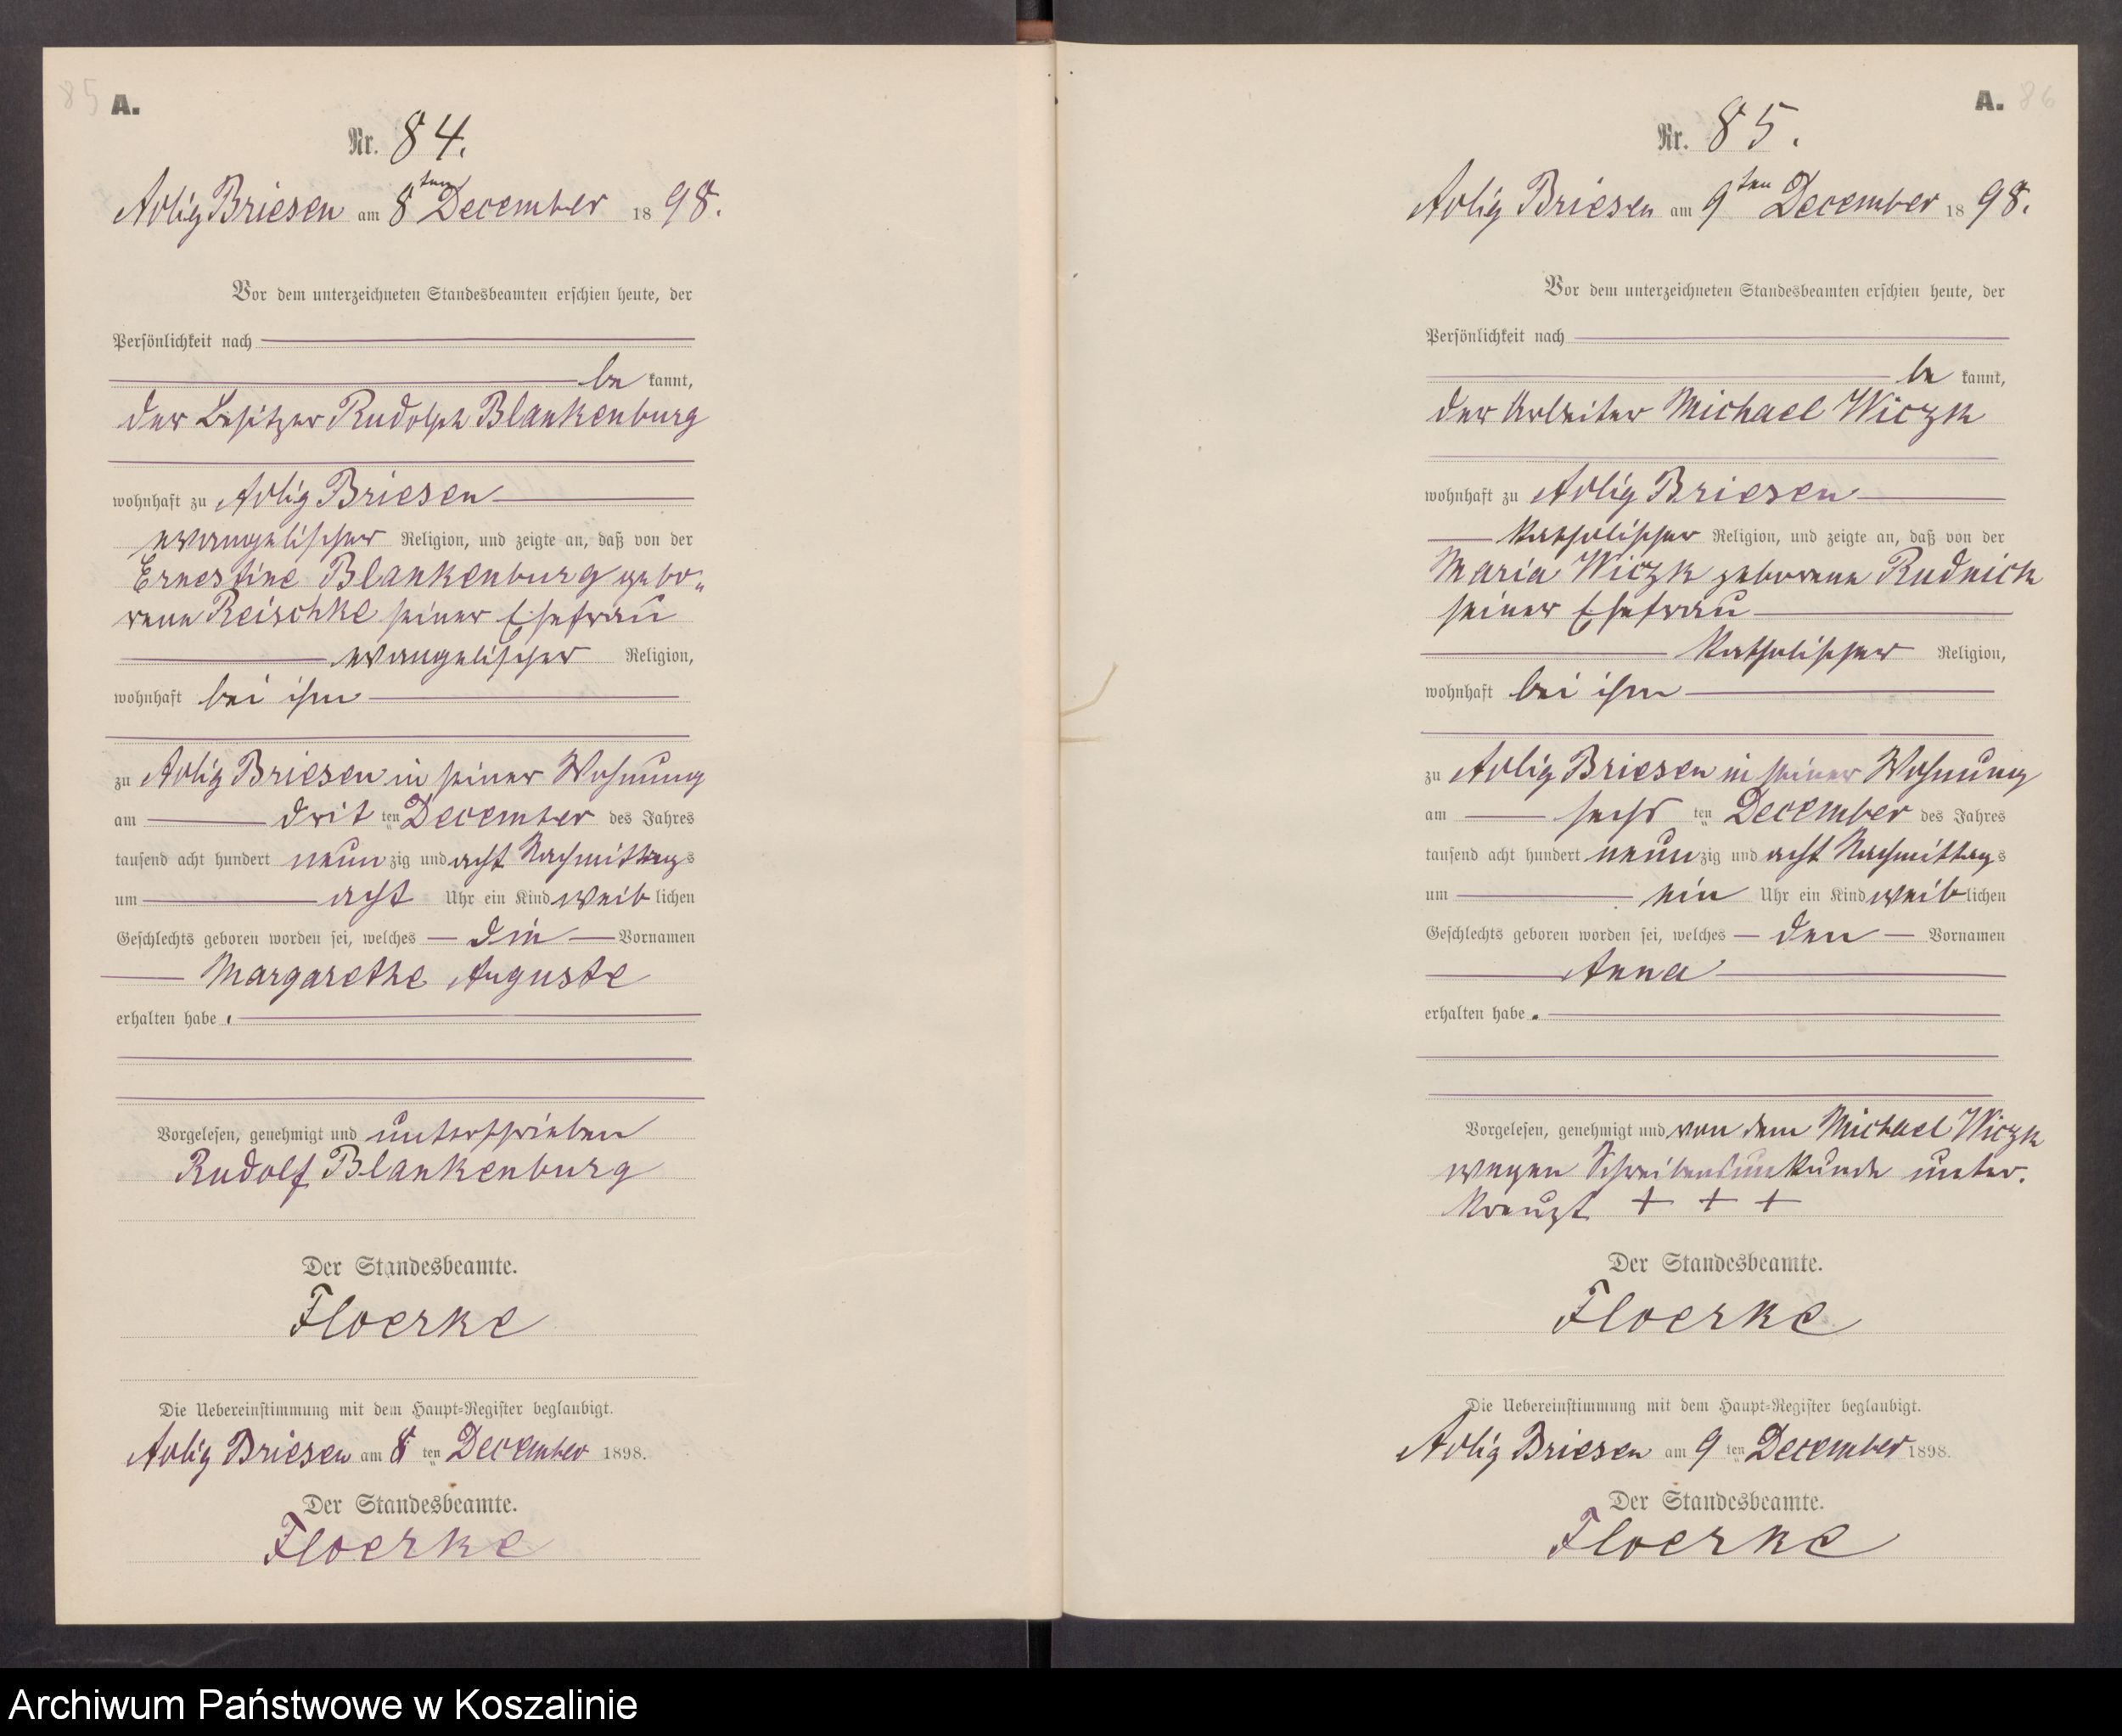 85
A.
Nr. 84.
Adlig Briesen am 8ten December 1898.
Vor dem unterzeichneten Standesbeamten erschien heute, der
Persönlichkeit nach
be kannt,
der Besitzer Rudolph Blankenburg
wohnhaft zu Adlig Briesen
evangelischer Religion, und zeigte an, daß von der
Ernestine Blankenburg gebo„
rene Reischke seiner Ehefrau
evangelischer Religion,
wohnhaft bei ihm
zu Adlig Briesen in seiner Wohnung
am drit ten December des Jahres
tausend acht hundert neunzig und acht Nachmittags
um acht Uhr ein Kind weiblichen
Geschlechts geboren worden sei, welches die Vornamen
Margarethe Auguste
erhalten habe.
Vorgelesen, genehmigt und unterschrieben
Rudolf Blankenburg
Der Standesbeamte.
Floerke
Die Uebereinstimmung mit dem Haupt-Register beglaubigt.
Adlig Briesen am 8ten December 1898.
Der Standesbeamte.
Floerke
A. 86
Nr. 85.
Adlig Briesen am 9ten December 1898.
Vor dem unterzeichneten Standesbeamten erschien heute, der
Persönlichkeit nach
be kannt,
der Arbeiter Michael Wiczk
wohnhaft zu Adlig Briesen
katholischer Religion, und zeigte an, daß von der
Maria Wiczk geborene Rudnick
seiner Ehefrau
katholischer Religion,
wohnhaft bei ihm
zu Adlig Briesen in seiner Wohnung
am sechs ten December des Jahres
tausend acht hundert neunzig und acht Nachmittags
um ein Uhr ein Kind weiblichen
Geschlechts geboren worden sei, welches den Vornamen
Anna
erhalten habe.
Vorgelesen, genehmigt und von dem Michael Wiczk
wegen Schreibensunkunde unter.
kreuzt + + +
Der Standesbeamte.
Floerke
Die Uebereinstimmung mit dem Haupt-Register beglaubigt.
Adlig Briesen am 9ten December 1898.
Der Standesbeamte.
Floerke
Archiwum Państwowe w Koszalinie